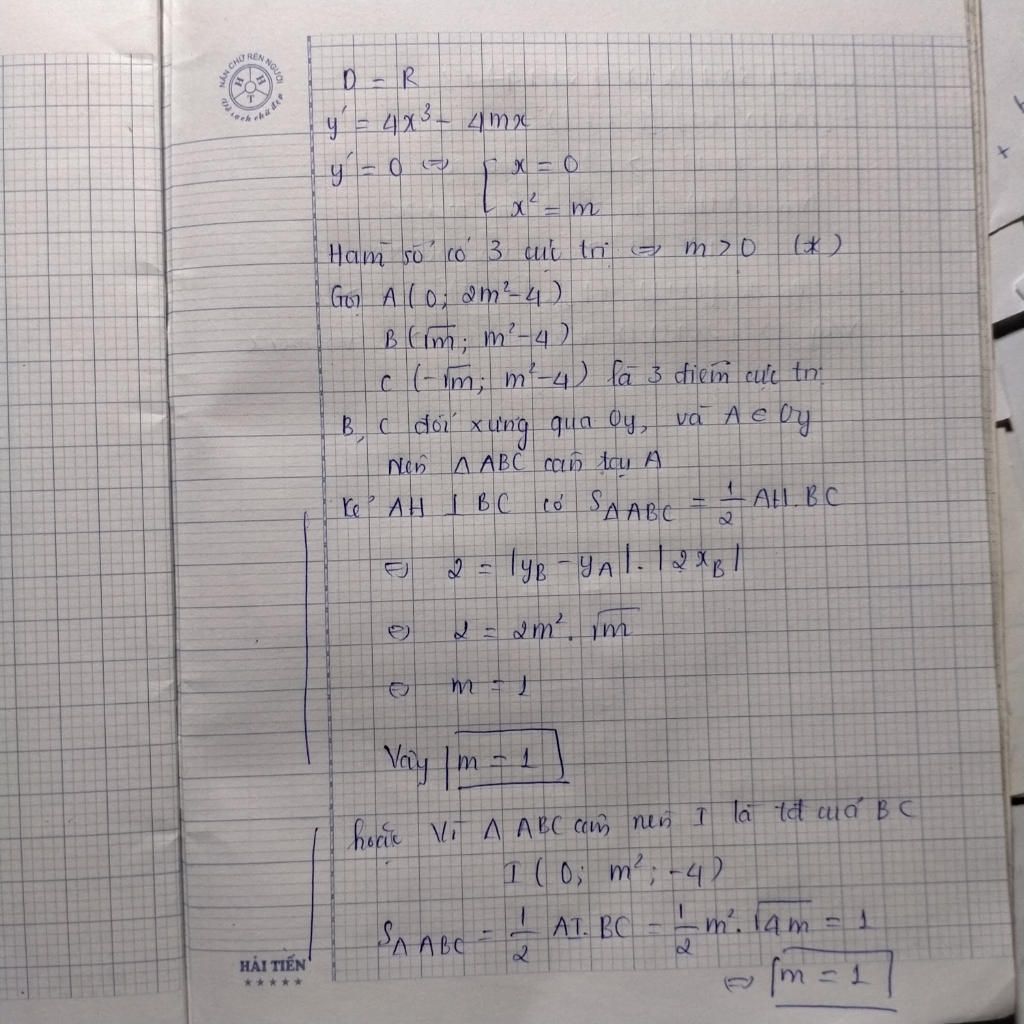 NÂN CHỮ RÈN NGƯỜI
H H T
Vở sạch chữ đẹp
D = R
y' = 4x³ - 4mx
y' = 0 ⇔ [ x = 0
x² = m
Hàm số có 3 cực trị ⇔ m > 0 (*)
Gọi A(0; 2m²-4)
B(√m; m²-4)
C(-√m; m²-4) là 3 điểm cực trị
B, C đối xứng qua Oy, và A ∈ Oy
Nên Δ ABC cân tại A
Kẻ AH ⊥ BC có S_{ΔABC} = 1/2 AH.BC
⇔ 2 = |y_B - y_A|.|2x_B|
⇔ 2 = 2m².√m
⇔ m = 1
Vậy m = 1
hoặc Vì Δ ABC cân nên I là tđ của BC
I(0; m²; -4)
S_{ΔABC} = 1/2 AI.BC = 1/2 m².√4m = 1
⇔ m = 1
HẢI TIẾN